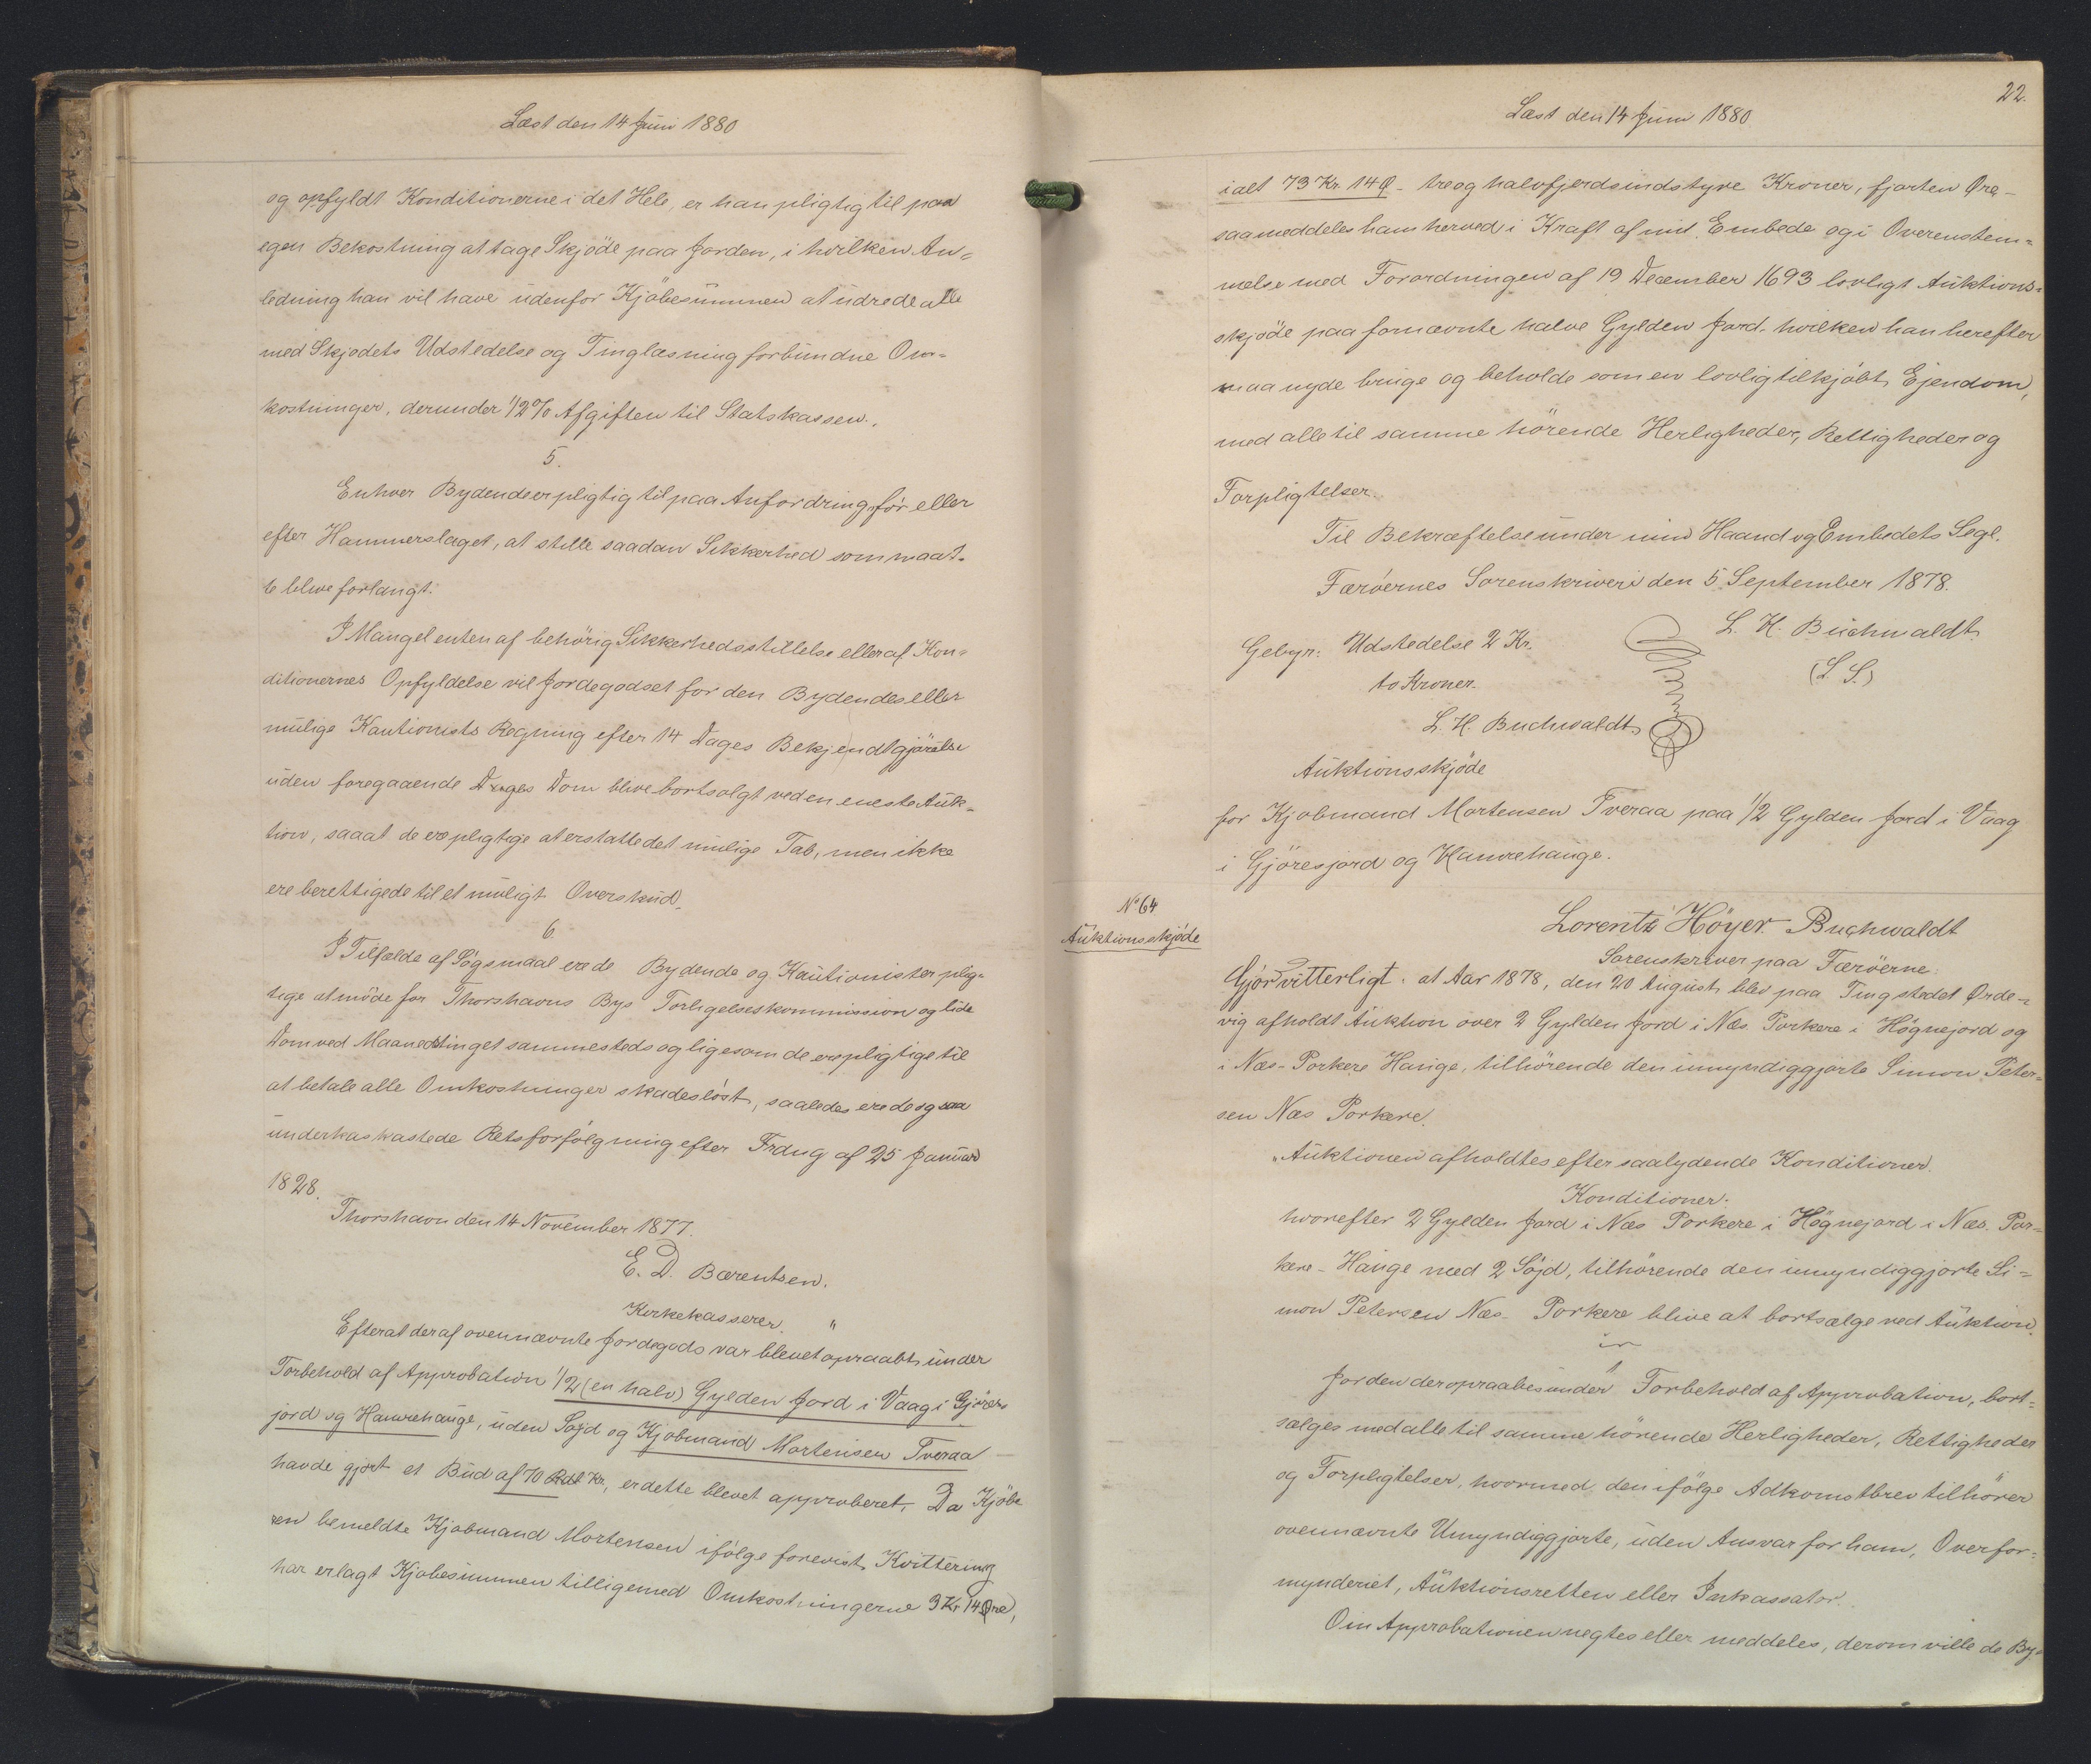 Læst den 14 Juni 1880
og opfyldt Konditionerne i det Hele, er han pligtig til paa
egen Bekostning at tage Skjöde paa Jorden, i hvilken An-
ledning han vil have udenfor Kjöbesummen at udrede alle
med Skjodets Udstedelse og Tinglæsning forbundne Om-
kostninger, derunder 1/2% Afgiften til Statskassen.
5.
Enhver Bydende er pligtig til paa Anfordring, før eller
efter Hammerslaget, at stille saadan Sikkerhed som maat-
te blive forlangt.
I Mangel enten af behörig Sikkerhedsstillelse eller af Kon-
ditionernes Opfyldelse vil Jordegodset for den Bydendes eller
mulige Kautionists Regning efter 14 Dages Bekjendtgjörelse
uden foregaaende Dom blive bortsolgt ved en eneste Auk-
tion, saaat de ere pligtige at erstatte det mulige Tab, men ikke
ere berettigede til et muligt Overskud.
6.
I Tilfælde af Søgsmaal ere de Bydende og Kautionister plig-
tige at möde for Thorshavns Bys Forligelseskommission og lide
Dom ved Maanedstinget sammesteds og ligesom de ere pligtige til
at betale alle Omkostninger skadeslöst, saaledes ere de og saa
underkaskastede Retsforfölgning efter Frdng af 25 Januar
1828.
Thorshavn den 14 November 1877.
E. D. Bærentsen.
Kirkekasserer. "
Efterat der af ovennævnte Jordegods var blevet opraabt under
Forbehold af Approbation 1/2 (en halv) Gylden Jord i Vaag i Gjöres
jord og Hamrehauge, uden Søjd og Kjøbmand Mortensen Tveraa
havde gjort et Bud af 70 Rdl Kr, er dette blevet approberet. Da Kjöbe
ren bemeldte Kjøbmand Mortensen ifölge forevist Kvittering
har erlagt Kjøbesummen tilligemed Omkostningerne 3 Kr 14 Øre,
22.
Læst den 14 Juni 1880
ialt 73 Kr. 14 Ø - tre og halvfjerdsindstyve Kroner, fjorten Øre -
saa meddeles ham herved i Kraft af mit Embede og i Overenstem-
melse med Forordningen af 19 December 1693 lovligt Auktions-
skjöde paa fornævnte halve Gylden Jord, hvilken han herefter
maa nyde bruge og beholde som en lovlig tilkjöbt Ejendom,
med alle til samme hörende Herligheder, Rettigheder og
Forpligtelser.
Til Bekræftelse under min Haand og Embedets Segl.
Færöernes Sorenskriveri den 5 September 1878.
L. H. Buchwaldt
(L. S.)
Gebyr: Udstedelse 2 Kr.
to Kroner.
L. H. Buchwaldt
Auktionsskjöde
for Kjøbmand Mortensen Tveraa paa 1/2 Gylden Jord i Vaag
i Gjöresjord og Hamrehauge.
No 64
Auktionsskjöde
Lorentz Höyer Buchwaldt
Sorenskriver paa Færöerne
Gjör vitterligt: at Aar 1878, den 20 August blev paa Tingstedet Ørde-
vig afholdt Auktion over 2 Gylden Jord i Næs Porkere i Högnejord og
i Næs-Porkere Hauge, tilhörende den umyndiggjorte Simon Peter-
sen Næs Porkere.
"Auktionen afholdtes efter saalydende Konditioner.
Konditioner.
hvorefter 2 Gylden Jord i Næs Porkere i Högnejord i Næs. Por-
kere-Hauge med 2 Söjd, tilhörende den umyndiggjorte Si-
mon Petersen Næs-Porkere blive at bortsælge ved Auktion.
1
Jorden der opraabes under Forbehold af Approbation, bort-
sælges med alle til samme hörende Herligheder, Rettigheder
og Forpligtelser, hvormed den ifölge Adkomstbrev tilhörer
ovennævnte Umyndiggjorte, uden Ansvar for ham, Overfor-
mynderiet, Auktionsretten eller Inkassator.
Om Approbationen negtes eller meddeles, derom ville de By-